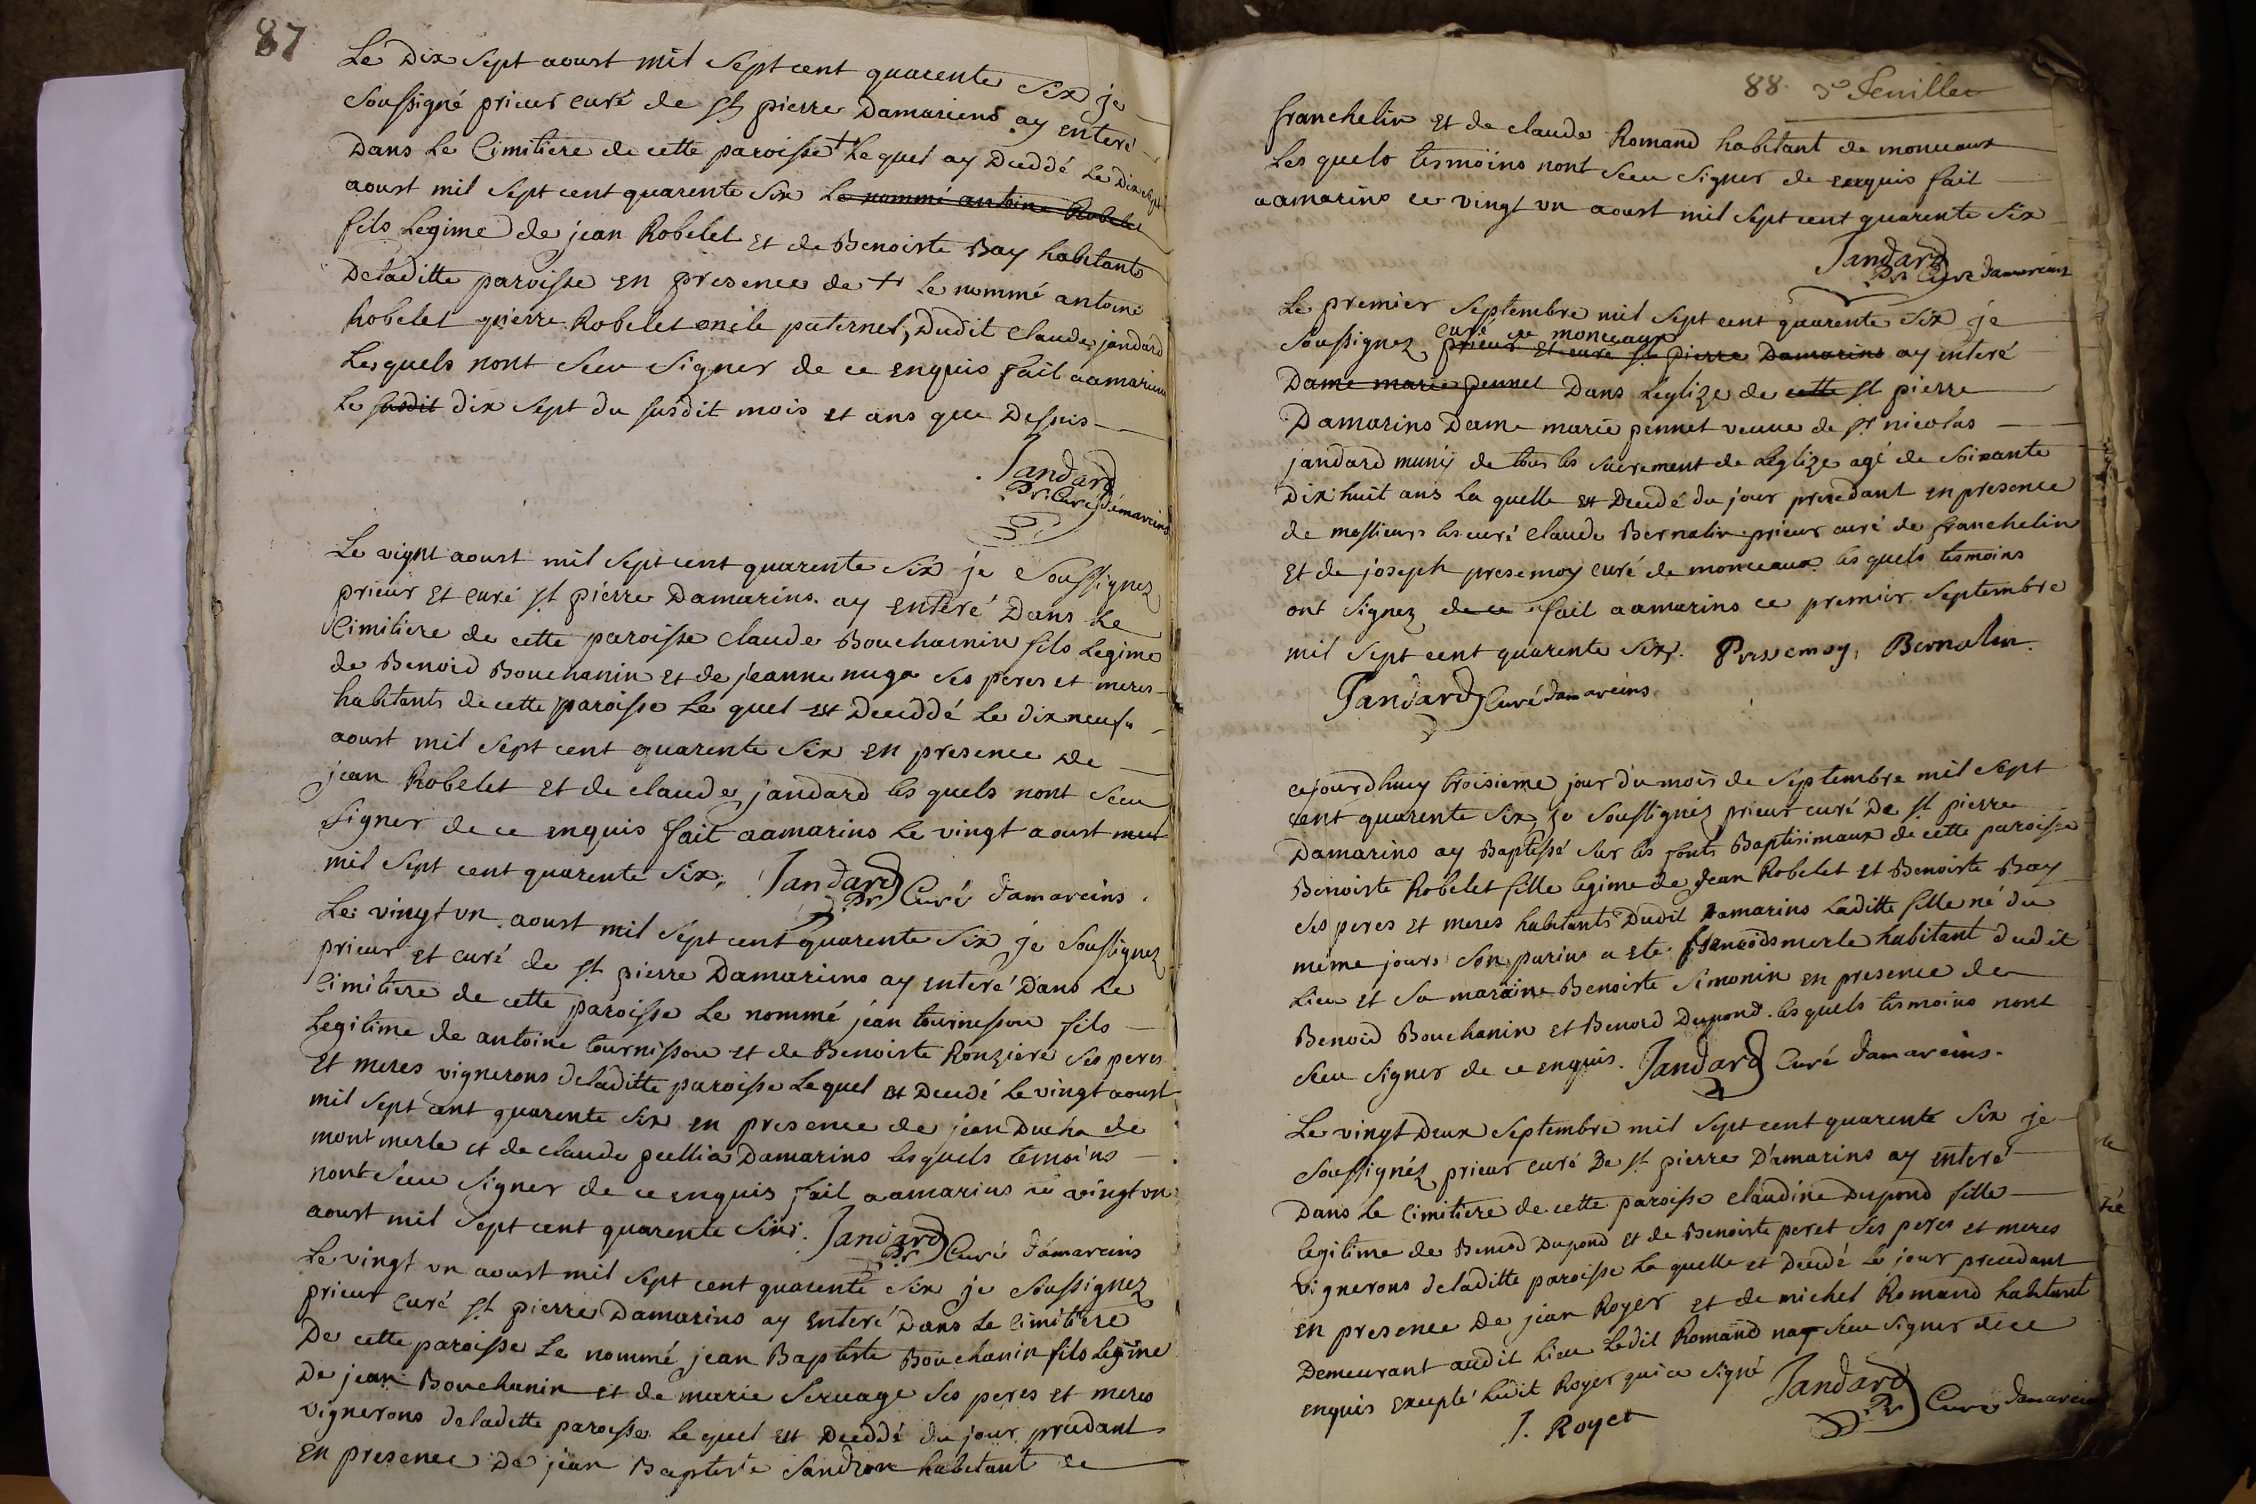 87
Le Dix sept aoust mil sept cent quarente six je
soussigné prieur curé de St pierre Damareins ay enteré
Dans le Cimitiere de cette paroisse + le quel ay Deceddé le Dix sept
aoust mil sept cent quarente six le nommé antoine Robelet
fils legime de jean Robelet et de Benoiste Bay habitants
Deladitte paroisse en presence de + le nommé antoine
Robelet pierre Robelet oncle paternel, Dudit Claude jandard
lesquels nont sceu signer de ce enquis fait a amarins
le susdit dix sept du susdit mois et ans que Dessus
Jandard
Pr. Curé damareins
Le vignt aoust mil sept cent quarente six je soussignez
prieur et curé St pierre Damarins ay enteré Dans le
Cimitiere de cette paroisse claude Bouchainin fils legime
de Benoid Bouchanin et de jeanne nuga ses peres et meres
habitants de cette paroisse le quel est Deceddé le dix neuf
aoust mil sept cent quarente six en presence de
jean Robelet et de claude jandard les quels nont sceu
signer de ce enquis fait a amarins le vingt aoust
mil sept cent quarente six, Jandard
Pr Curé damareins.
Le vingt un aoust mil sept cent quarente six je soussignez
prieur et curé de St pierre Damareins ay enteré Dans le
Cimitiere de cette paroisse le nommé jean tournissou fils
legitime de antoine tournissou et de Benoiste Ronziere ses peres
et meres vignerons deladitte paroisse lequel est Decedé le vingt aoust
mil sept cent quarente six en presence de jean Ducha de
montmerle et de claude pellia Damarins lesquels temoins
nont sceu signer de ce enquis fait a amarins ce vingt un
aoust mil sept cent quarente six. Jandard
Pr Curé damareins
Le vingt un aoust mil sept cent quarente six je soussignez
prieur curé St pierre Damarins ay enteré Dans le Cimitiere
De cette paroisse le nommé jean Baptiste Bouchanin fils legime
De jean Bouchanin et de marie seruage ses peres et meres
vignerons deladitte paroisse lequel est Deceddé du jour precdant
en presence De jean Baptiste Sandron habitant de
88. 3e feuillet
franchelin et de claude Romand habitant de monceaux
les quels tesmoins nont sceu signer de enquis fait
a amarins ce vingt un aoust mil sept cent quarente six
Jandard
Pr Curé damareins
Le premier septembre mil sept cent quarente six je
curé de monceaux
soussignez prieur et curé St pierre Damarins ay enteré
Dame marie pennet Dans leglize de cette St pierre
Damarins Dame marie pennet veuve de Sr nicolas
jandard muni de tous les sacrement de leglize agé de soixante
Dix huit ans la quelle est Decedé du jour precedant en presence
de messieurs les curé claude Bernalin prieur curé de franchelin
et de joseph presemoy curé de monceaux les quels tesmoins
ont signez de ce fait a amarins ce premier septembre
mil sept cent quarente six. Presemoy, Bernalin.
Jandard Curé damareins
cejourdhuy troisieme jour du mois de septembre mil sept
cent quarente six, je soussignés prieur curé De St pierre
Damarins ay Baptissé sur les fonts Baptisimaux de cette paroisse
Benoiste Robelet fille legime de jean Robelet et Benoiste Bay
ses peres et meres habitants Dudit Damarins laditte fille né du
meme jours son parins a eté françois merle habitant dudit
lieu et sa maraine Benoiste simonin en presence de
Benoid Bouchanin et Benoid Dupond les quels tesmoins nont
sceu signer de ce enquis. Jandard Curé damareins.
Le vingt Deux septembre mil sept cent quarente six je
soussignés prieur curé De St pierre D'amarins ay enteré
Dans le Cimitiere de cette paroisse claudine Dupond fille
legitime de Benoid Dupond et de Benoiste peret ses peres et meres
vignerons deladitte paroisse la quelle et Decedé le jour precedant
en presence De jean Royer et de michel Romand habitant
Demeurant audit lieu ledit Romand nay sceu signer dece
enquis excepté ledit Royer qui a signé Jandard
Pr Curé damareins
J. Royer